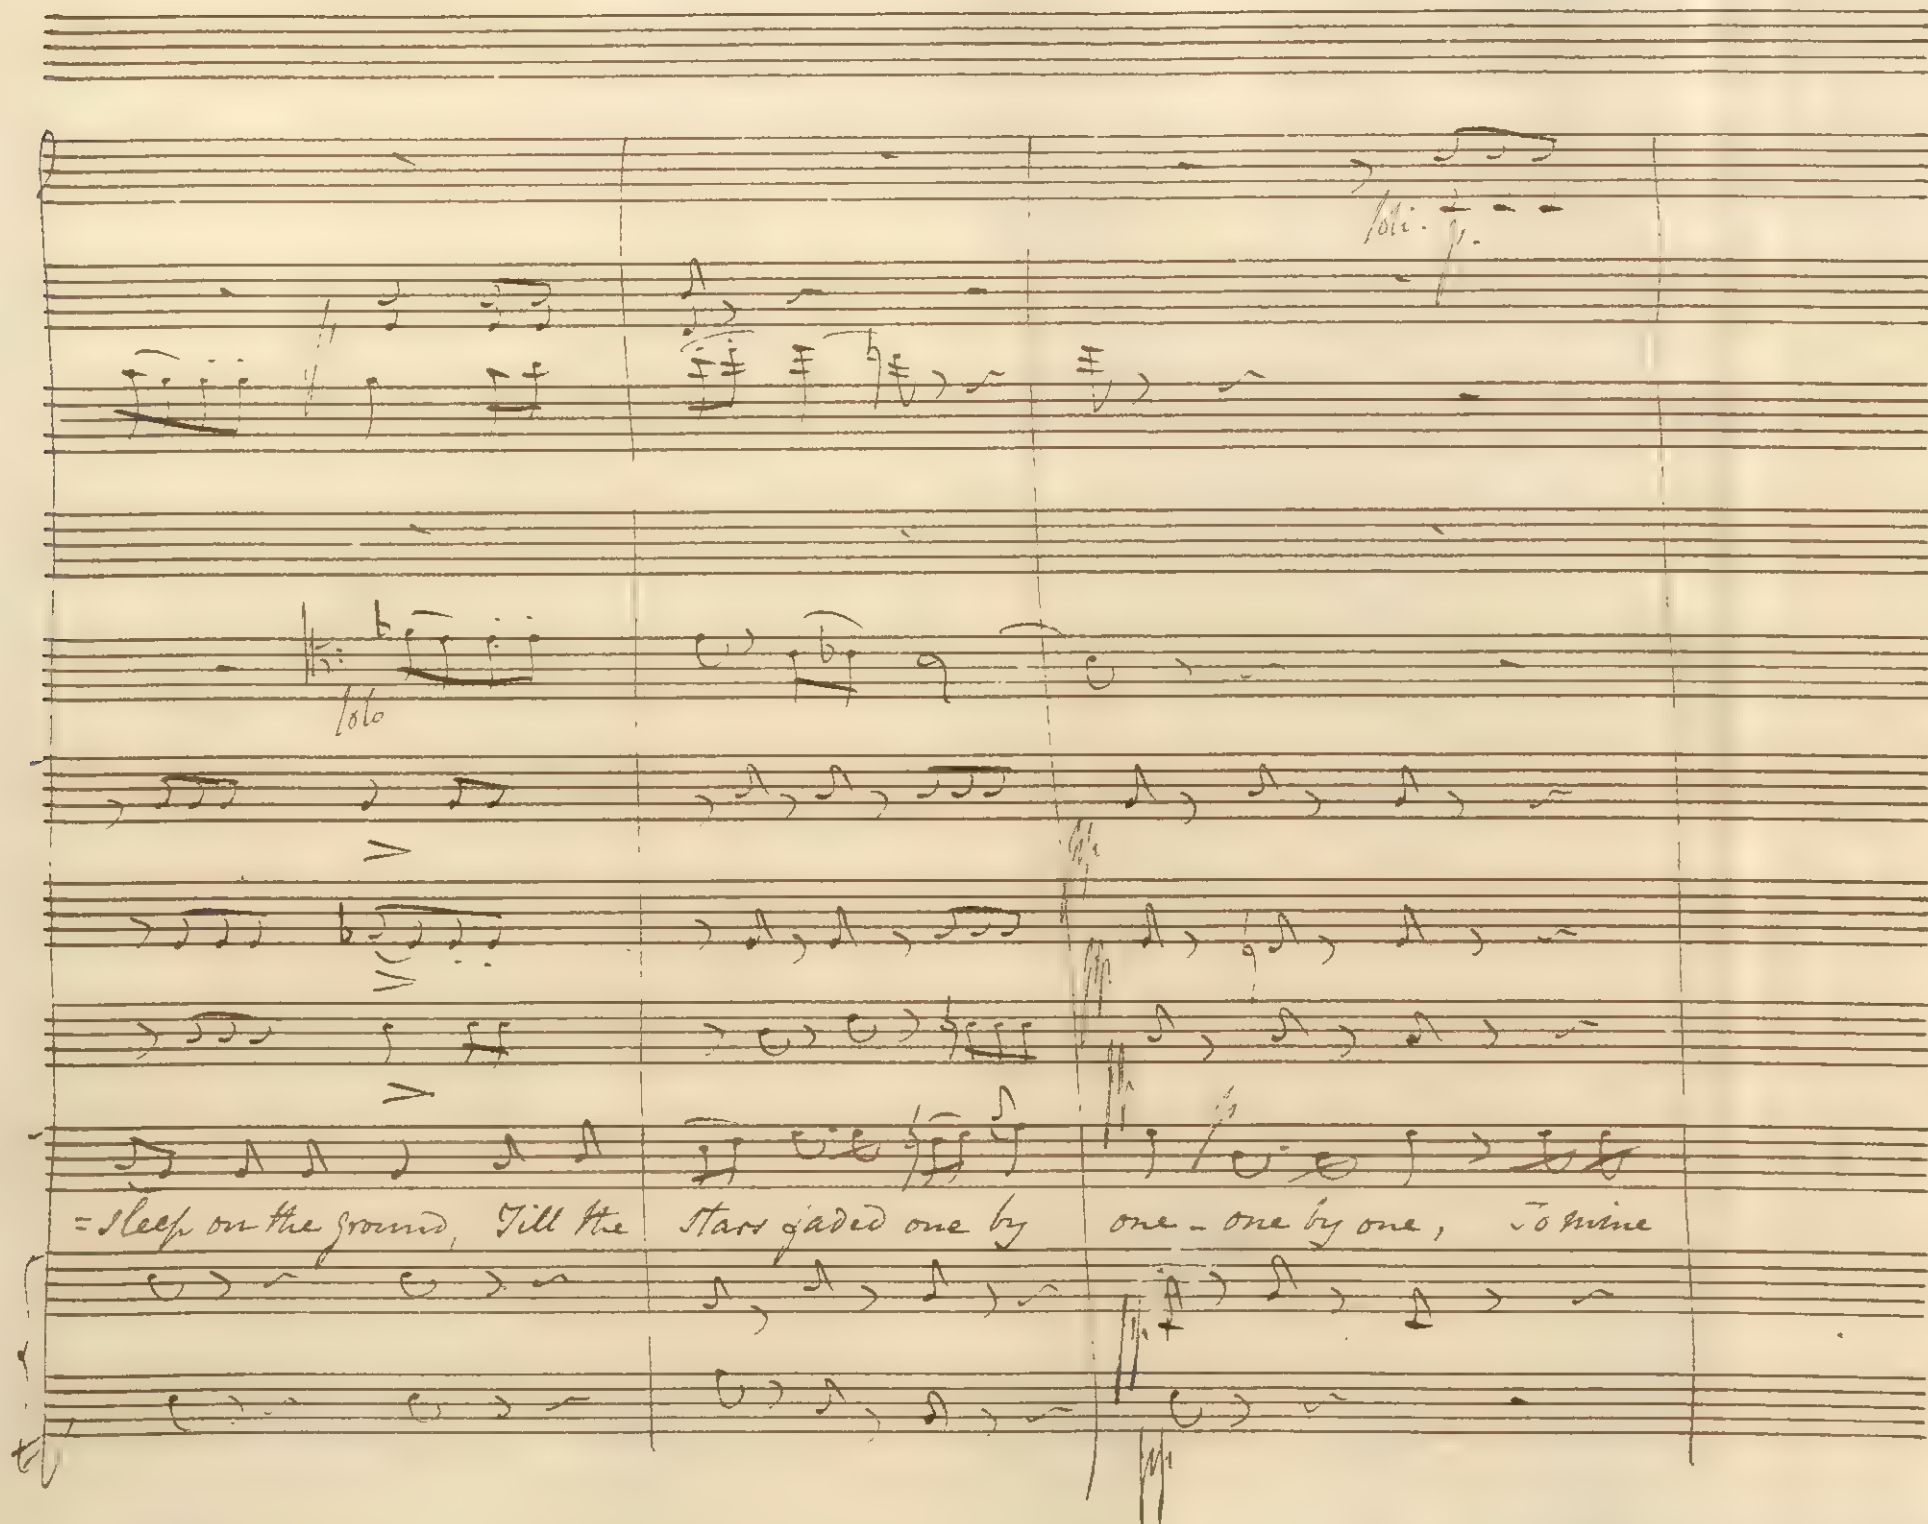 Soli. p.
Solo
pp
pp
pp
=sleep on the ground, Till the stars faded one by one - one by one, To mine
pp
pp